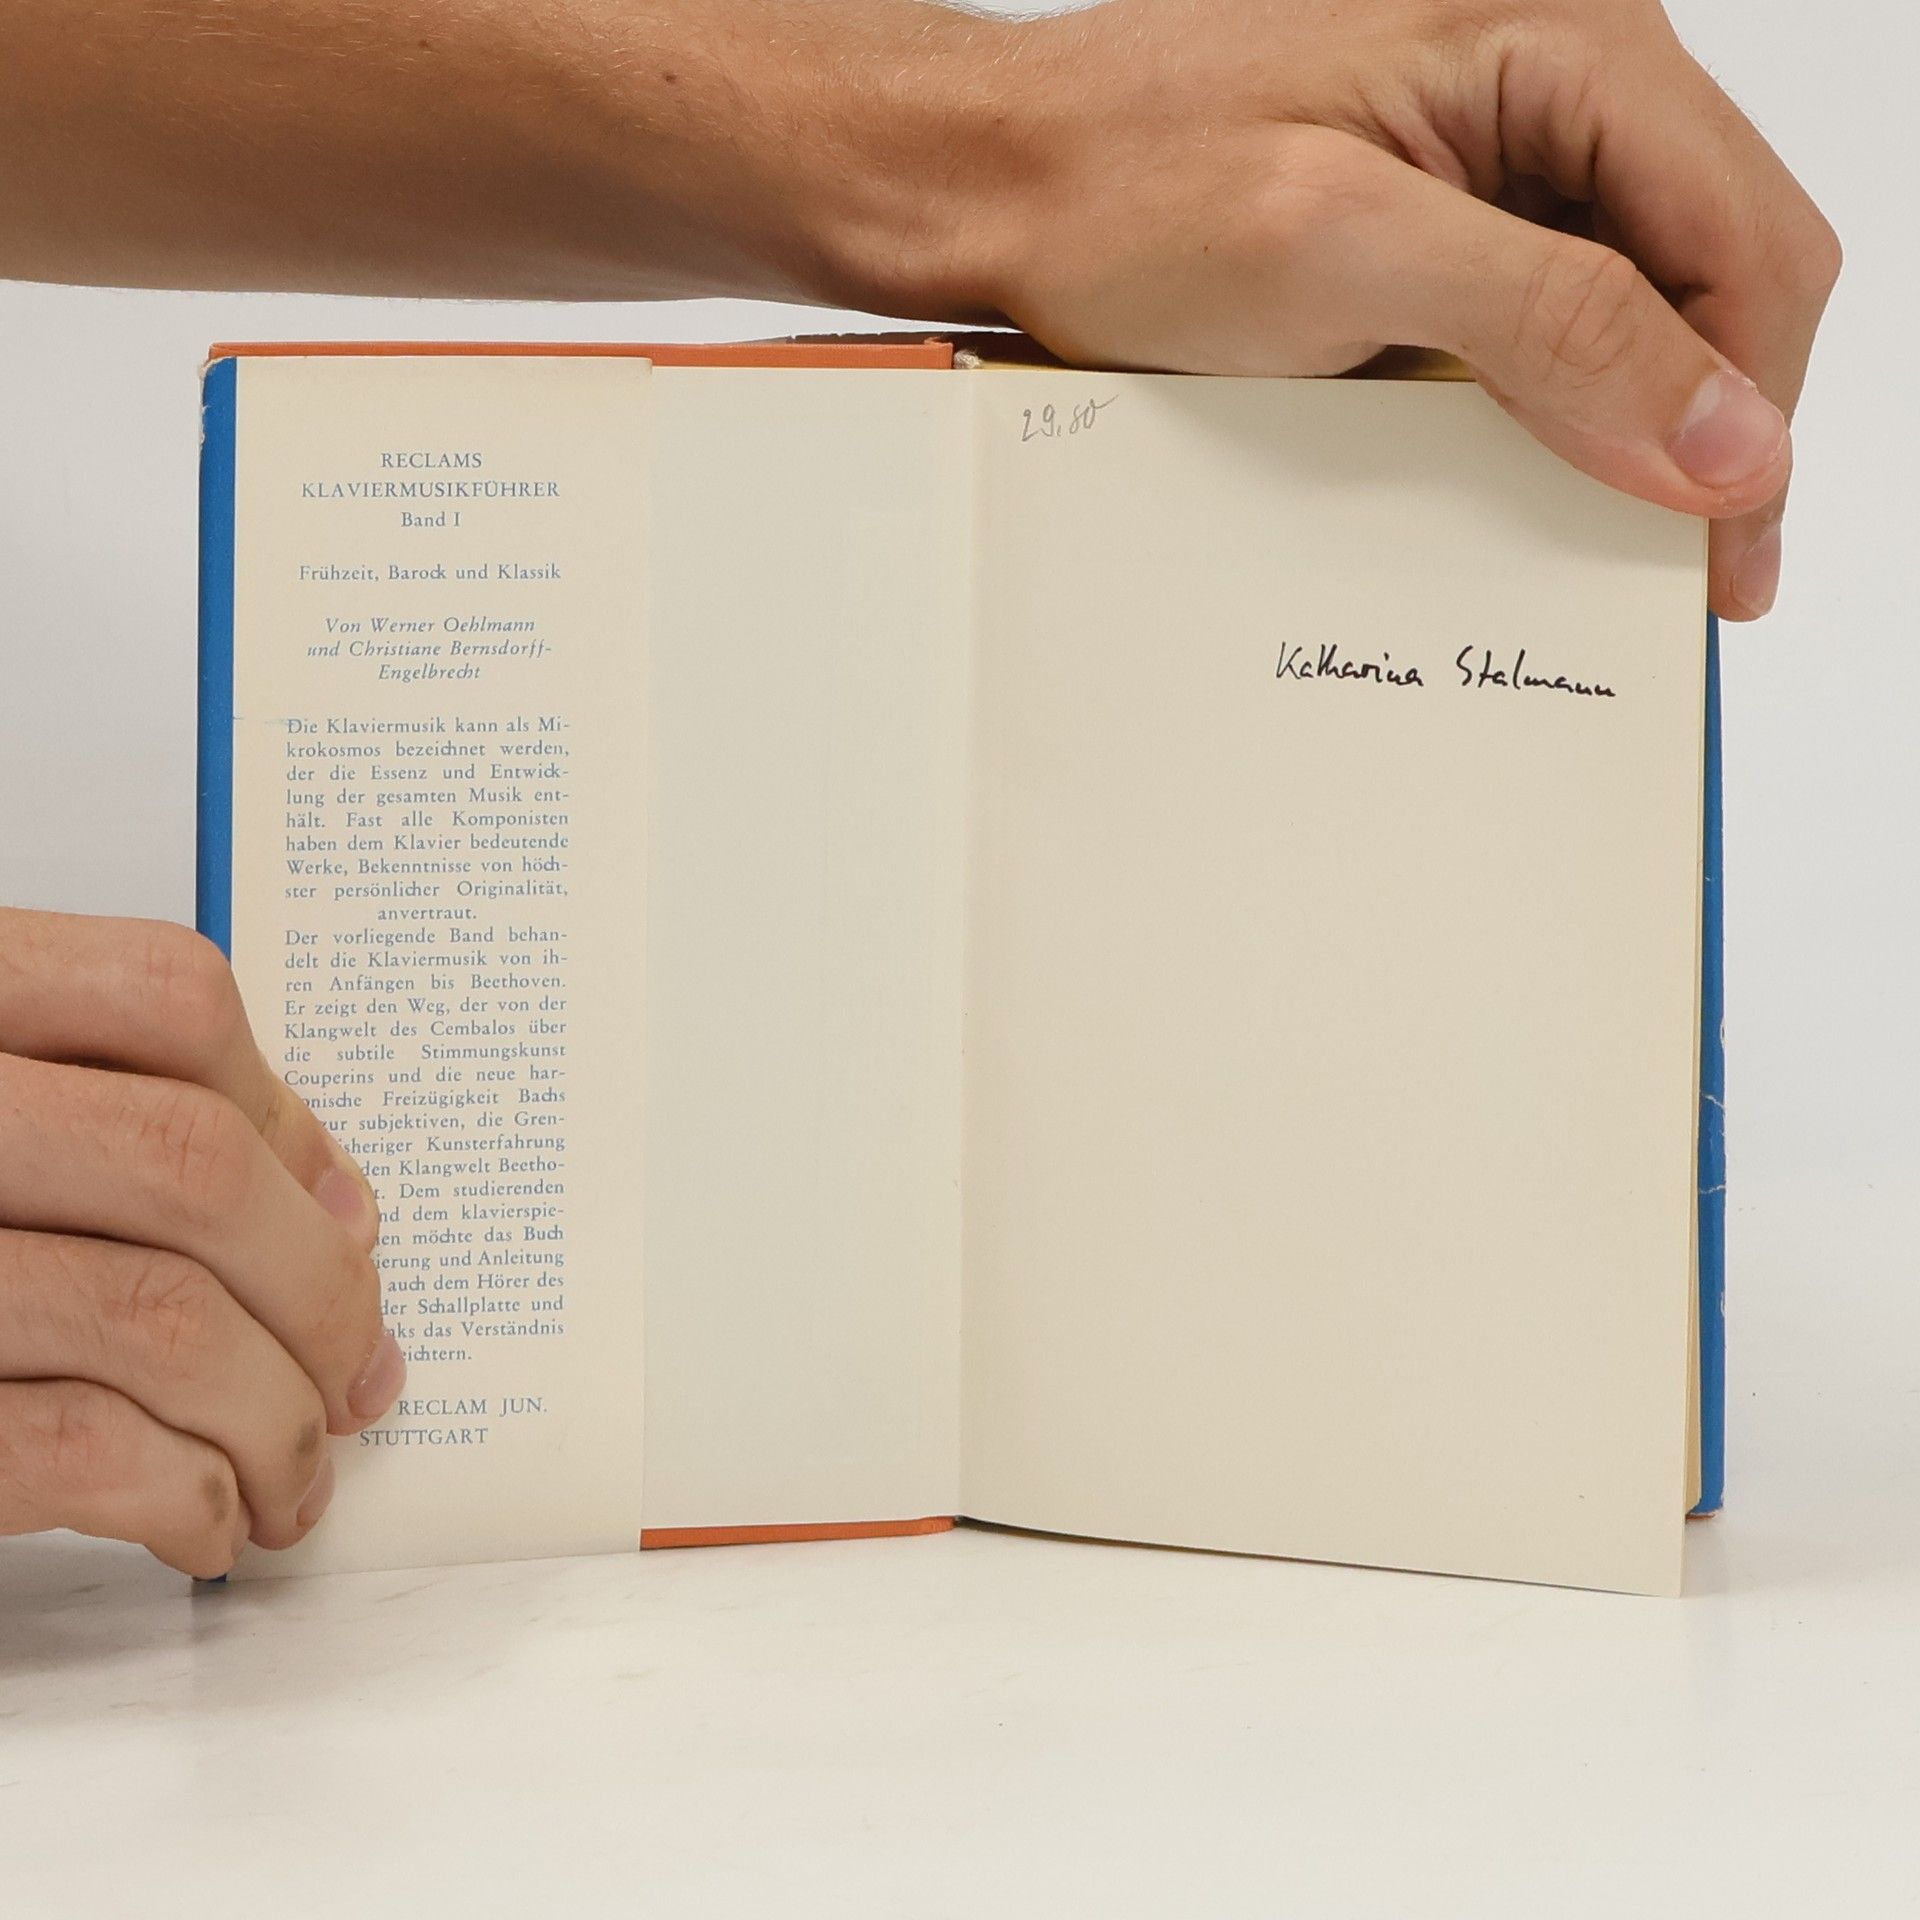 RECLAMS
KLAVIERMUSIKFÜHRER
Band I
Frühzeit, Barock und Klassik
Von Werner Oehlmann
und Christiane Bernsdorff-
Engelbrecht
Die Klaviermusik kann als Mi-
krokosmos bezeichnet werden,
der die Essenz und Entwick-
lung der gesamten Musik ent-
hält. Fast alle Komponisten
haben dem Klavier bedeutende
Werke, Bekenntnisse von höch-
ster persönlicher Originalität,
anvertraut.
Der vorliegende Band behan-
delt die Klaviermusik von ih-
ren Anfängen bis Beethoven.
Er zeigt den Weg, der von der
Klangwelt des Cembalos über
die subtile Stimmungskunst
Couperins und die neue har-
onische Freizügigkeit Bachs
zur subjektiven, die Gren-
isheriger Kunsterfahrung
den Klangwelt Beetho-
t. Dem studierenden
nd dem klavierspie-
en möchte das Buch
ierung und Anleitung
auch dem Hörer des
der Schallplatte und
ks das Verständnis
eichtern.
RECLAM JUN.
STUTTGART
29,80
Katharina Stalmann